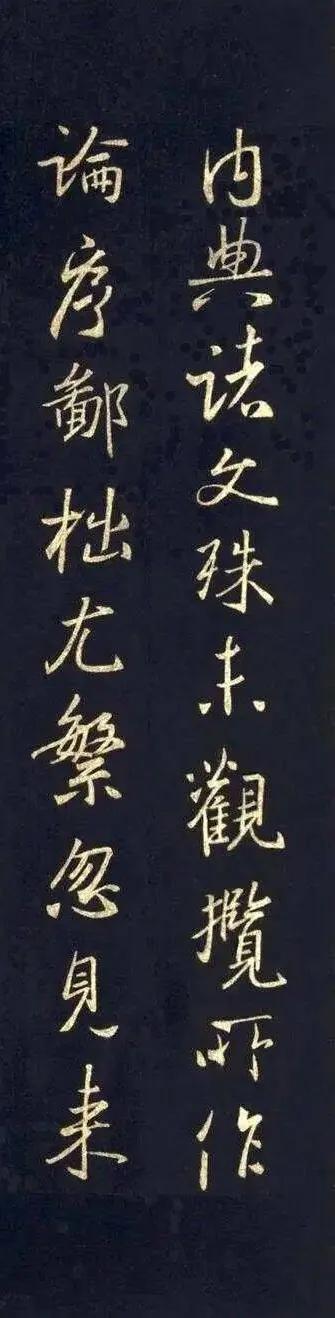 內典諸文殊未觀攬所作
論序鄙拙尤繁忽見来